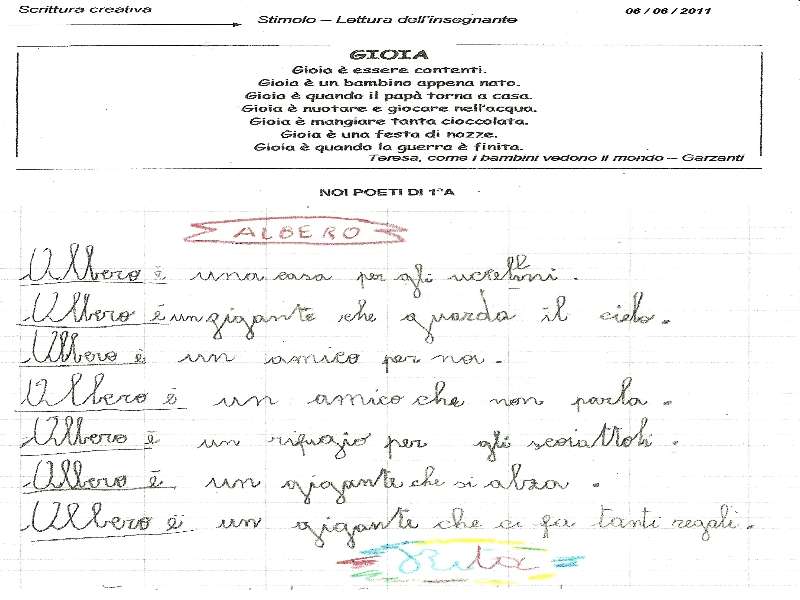 Scrittura creativa
06 / 06 / 2011
Stimolo – Lettura dell'insegnante
GIOIA
Gioia è essere contenti.
Gioia è un bambino appena nato.
Gioia è quando il papà torna a casa.
Gioia è nuotare e giocare nell'acqua.
Gioia è mangiare tanta cioccolata.
Gioia è una festa di nozze.
Gioia è quando la guerra è finita.
Teresa, come i bambini vedono il mondo – Garzanti
NOI POETI DI 1°A
ALBERO
Albero è una casa per gli uccellini.
Albero è un gigante che guarda il cielo.
Albero è un amico per noi.
Albero è un amico che non parla.
Albero è un rifugio per gli scoiattoli.
Albero è un gigante che si alza.
Albero è un gigante che ci fa tanti regali.
Rita